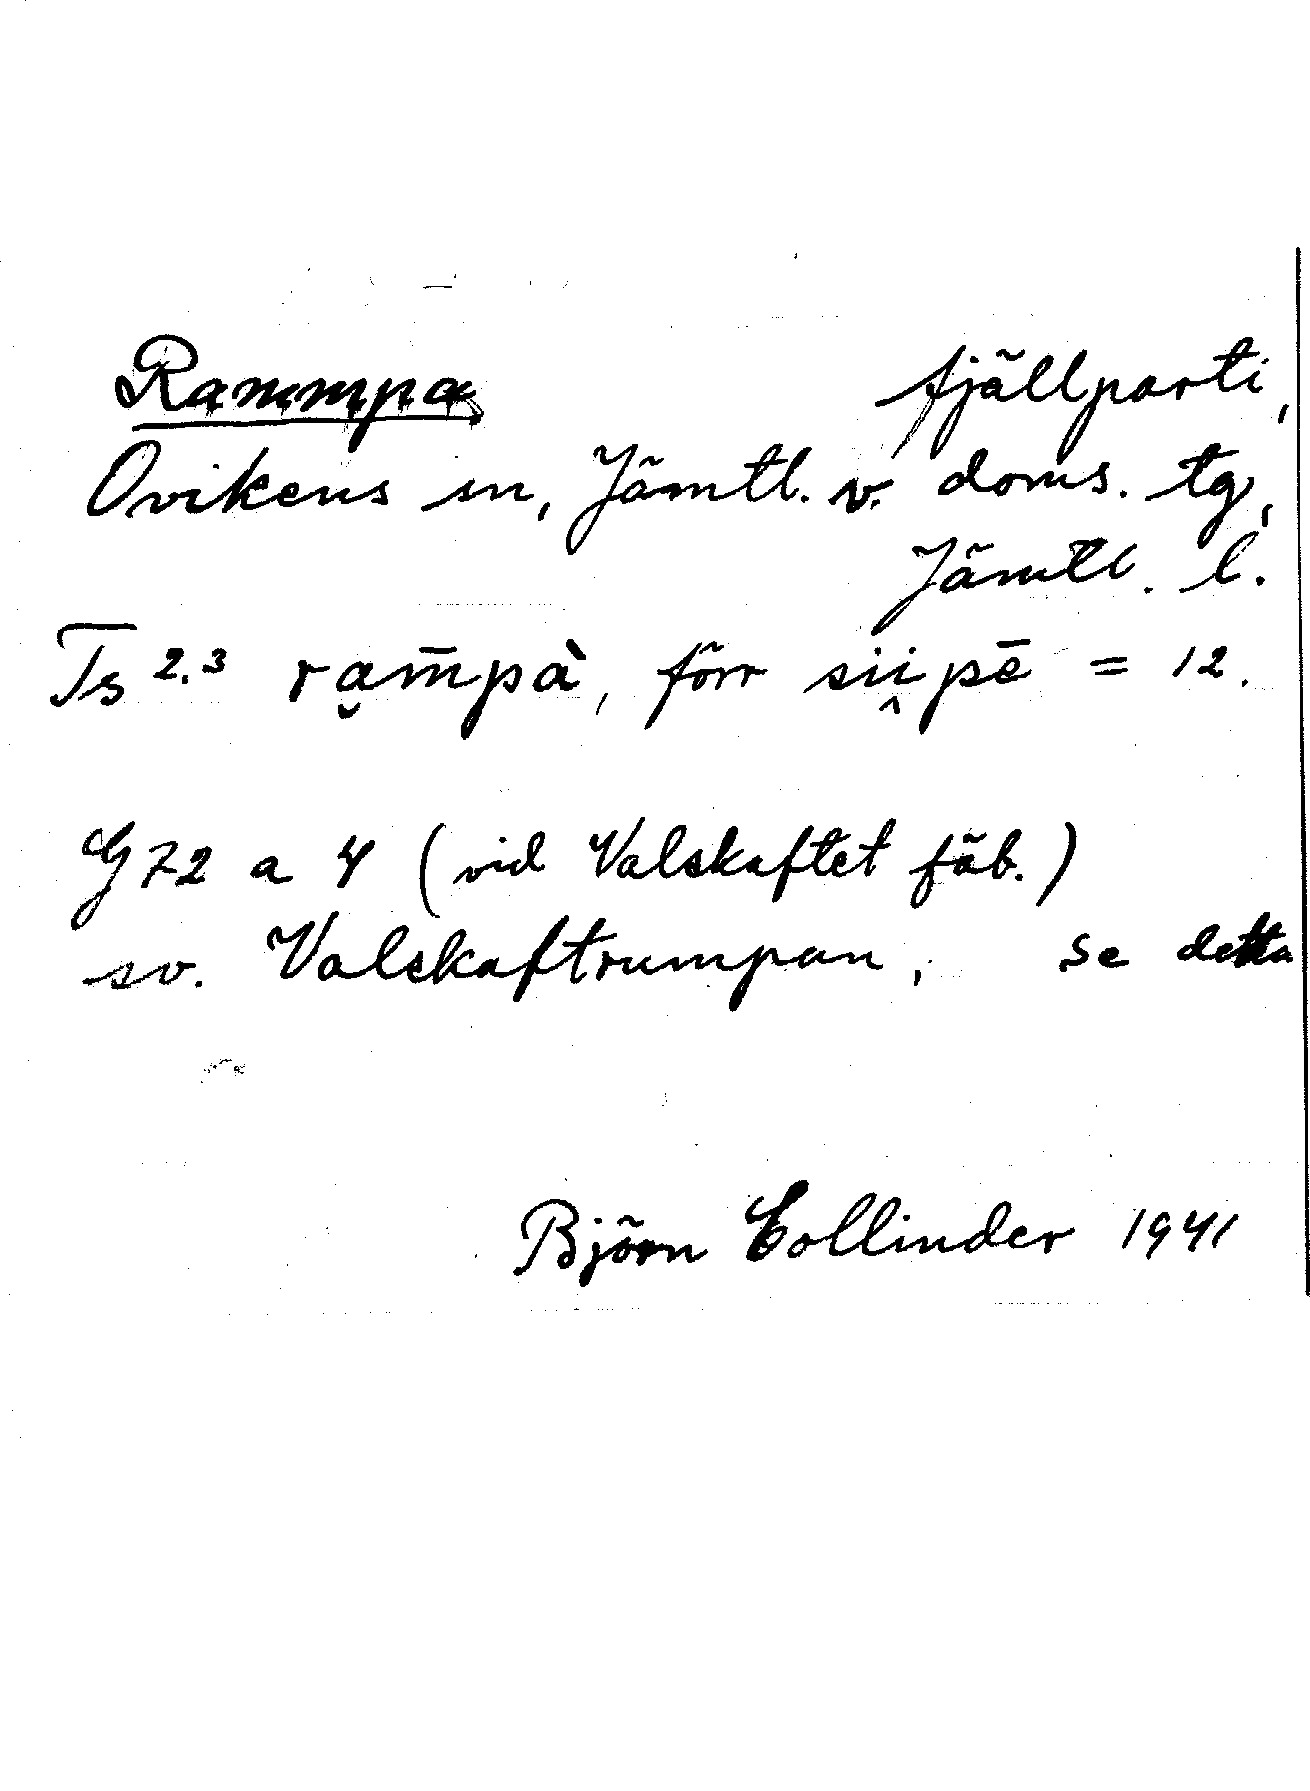 Rammpa fjällparti,
Ovikens sn, Jämtl. v. doms. tg,
Jämtl. l.
Ts 2.3 ra̮m̄pà, förr sii̭pē = 12.
G 72 a 4 (vid Valskaftet fäb.)
sv. Valskaftrumpan, se detta
Björn Collinder 1941